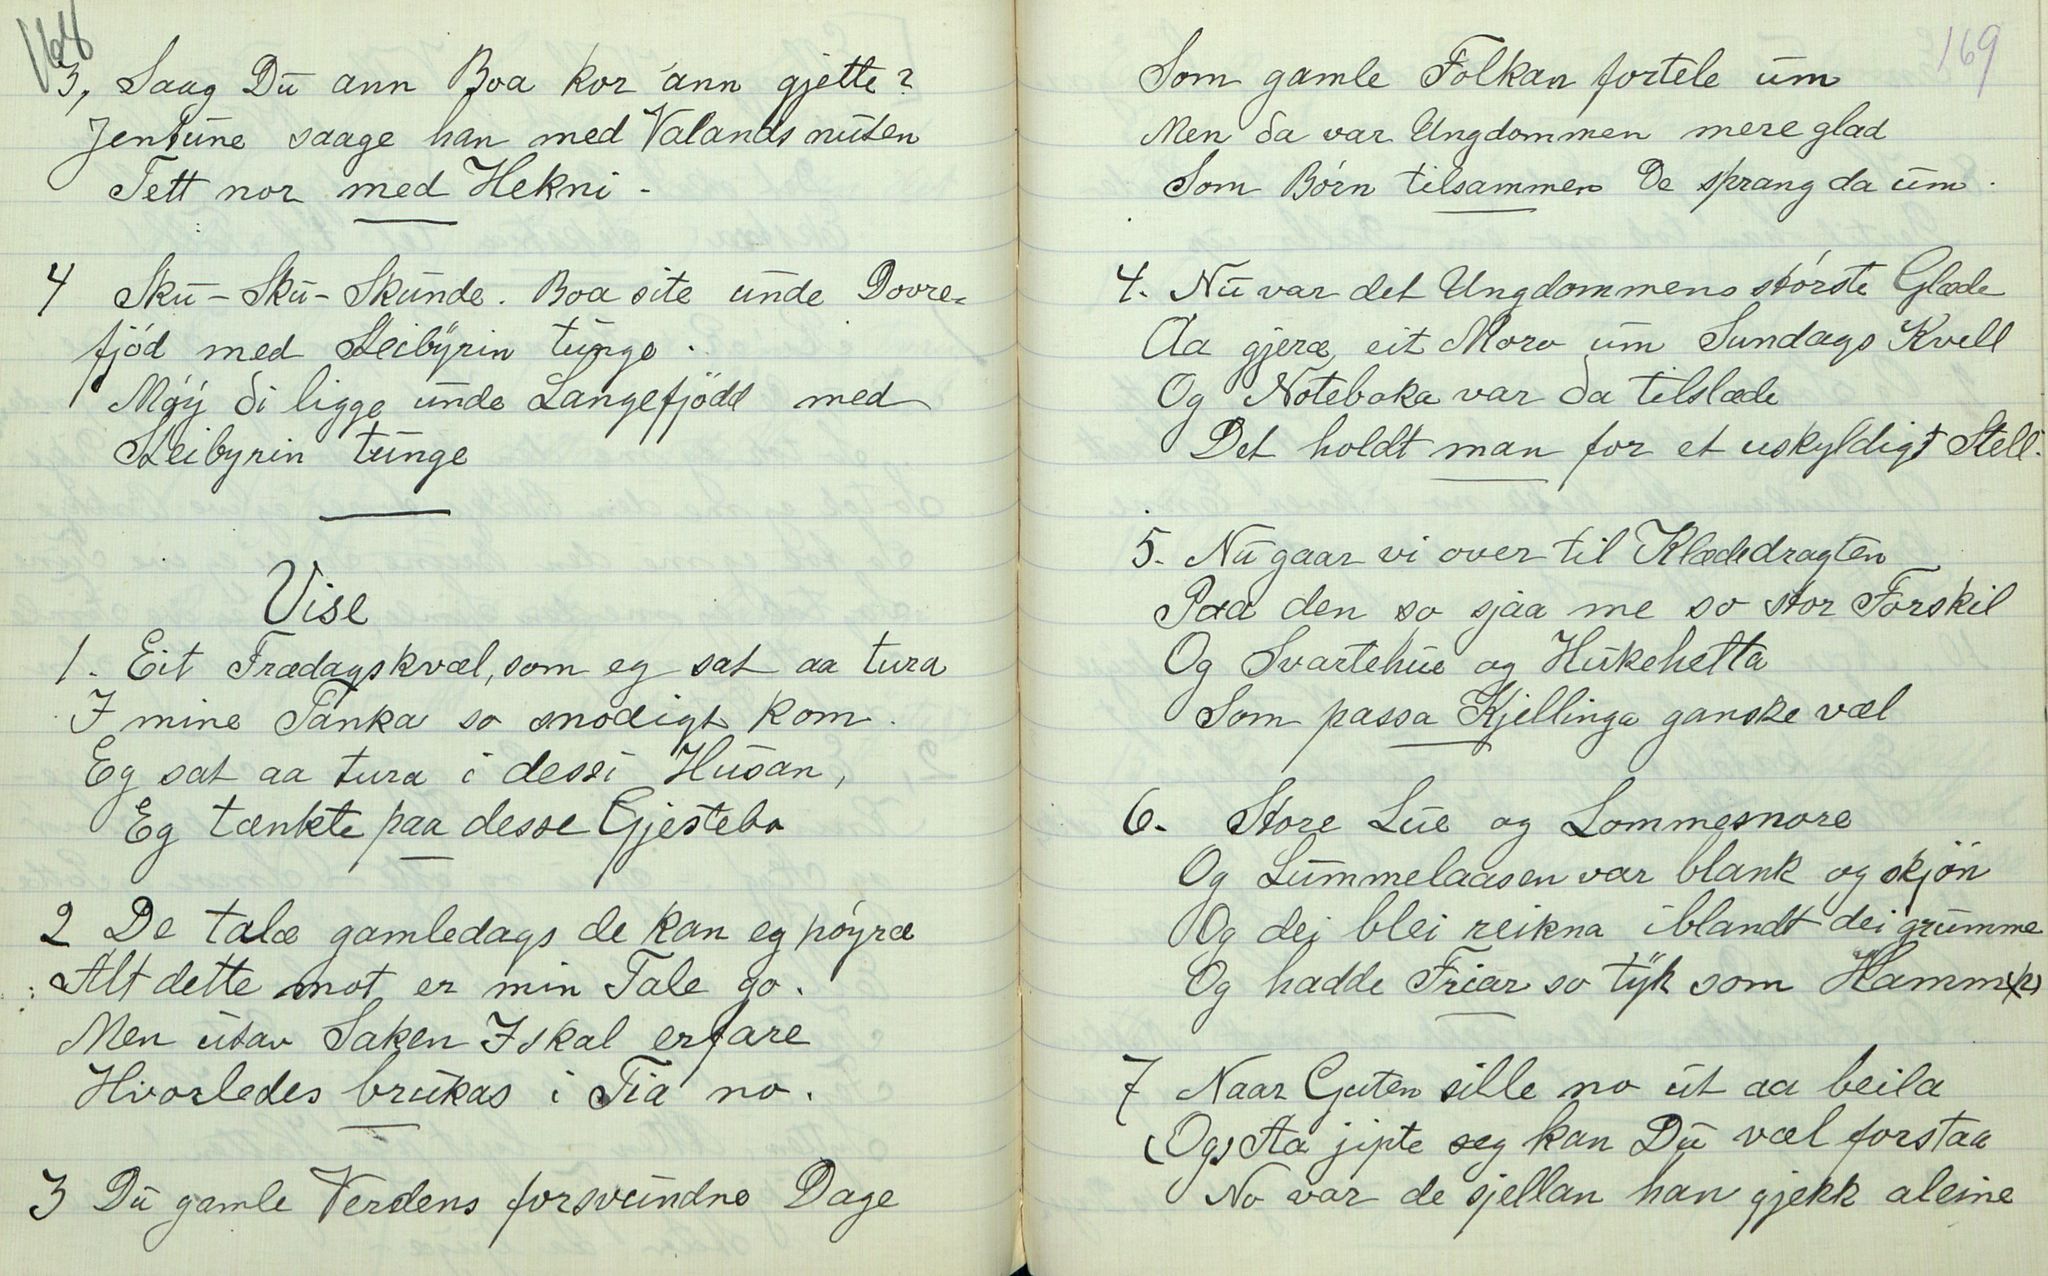 168
3, Saag Du ann Boa kor ann gjette?
Jentune saage han med Valandsnuten
Tett nor med Hekni -
4 Sku - Sku - Skunde. Boa site unde Dovre=
fjöd med Steibyrin tunge.
Møy di ligge unde Langefjödd med
Steibyrin tunge
Vise
1. Eit Frædagskvæl, som eg sat aa tura
I mine Tanka so snodigt kom.
Eg sat aa tura i dessi Husan,
Eg tænkte paa desse Gjestebo
2 De talæ gamledags de kan eg höyræ
Alt dette mot er min Tale go.
Men utav Saken I skal erfare
Hvorledes brukas i Tia no.
3 Du gamle Verdens forsvundne Dage
169
Som gamle Folkan fortele um
Men da var Ungdommen mere glad
Som Börn tilsammen De sprang da um.
4. Nu var det Ungdommens störste Glæde
Aa gjeræ eit Moro um Sundags Kvell
Og Noteboka var da tilstæde
Det holdt man for et uskyldigt Stell.
5. Nu gaar vi over til Klædedragten
Paa den so sjaa me so stor Forskil
Og Svartehue og Hukehetta
Som passa Kjellinga ganske væl
6. Store Lue og Lommesnore
Og Lummelaasen var blank og skjön
Og dei blei reikna iblandt dei grumme
Og hadde Friar so tyk som Hamm(r)
7 Naar Guten sille no ut aa beila
(Og) Aa jipte seg kan Du væl forstaa
No var de sjellan han gjekk aleine